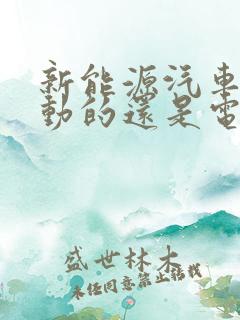 新能源汽車
動的還是電
盛世林木
未經同意禁止轉載